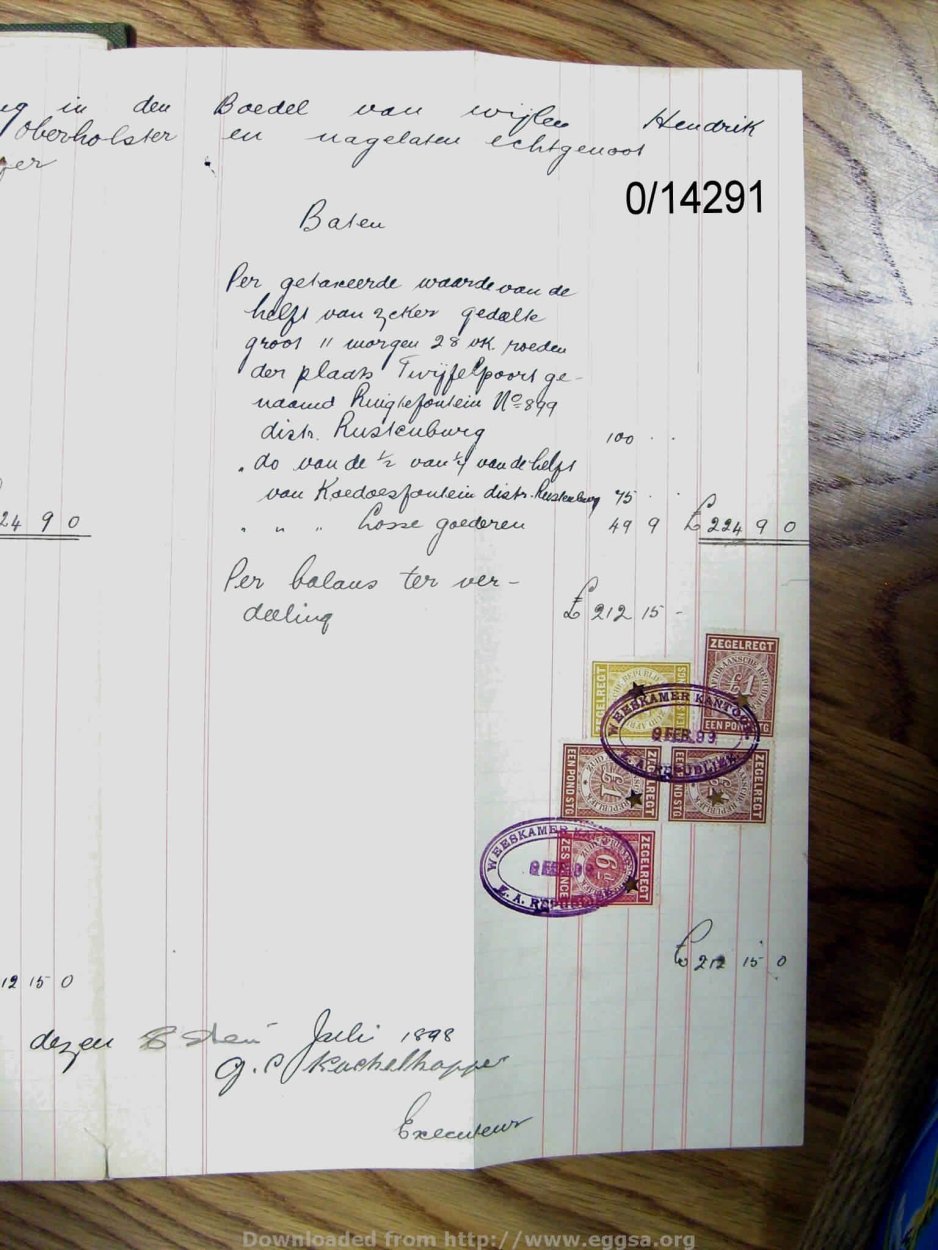 in den Boedel van wijlen Hendrik
Oberholster en nagelaten echtgenoot
0/14291
Baten
Per getaxeerde waarde van de
helft van zeker gedeelte
groot 11 morgen 28 vk roeden
der plaats Twijfelpoort ge-
naamd Ruigtefontein No 899
distr. Rustenburg 100 . .
" do van de 1/2 van 1/4 van de helft
van Koedoesfontein distr. Rustenburg 75 . .
" " " Losse goederen 49 9 £ 224 9 0
24 9 0
Per balans ter ver-
deeling £ 212 15 -
ZEGELREGT
EEN POND STG
£1
ZEGELREGT
WEESKAMER KANTOOR
9 FEB. 99
Z. A. REPUBLIEK
ZEGELREGT
£1
EEN POND STG
ZEGELREGT
EEN POND STG
WEESKAMER KANTOOR
9 FEB 99
Z. A. REPUBLIEK
ZEGELREGT
6d
ZES PENCE
£ 212 15 0
12 15 0
dezen 8sten Juli 1898
G. P. Kachelhoffer
Executeur
Downloaded from http://www.eggsa.org